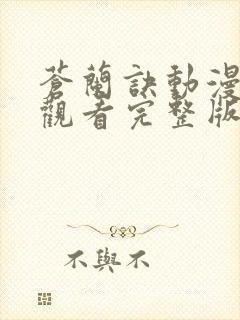 蒼蘭訣動漫
觀看完整版
不與不